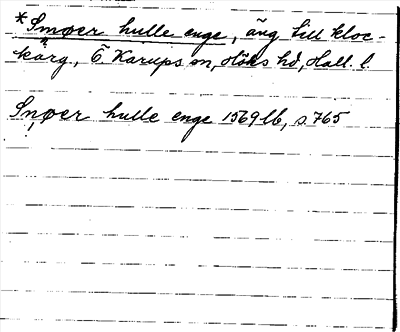 *Smøer hulle enge, äng till kloc-
kärg., Ö Karups sn, Höks hd, Hall. l.
Snøer hulle enge 1569 lb, s. 765
!